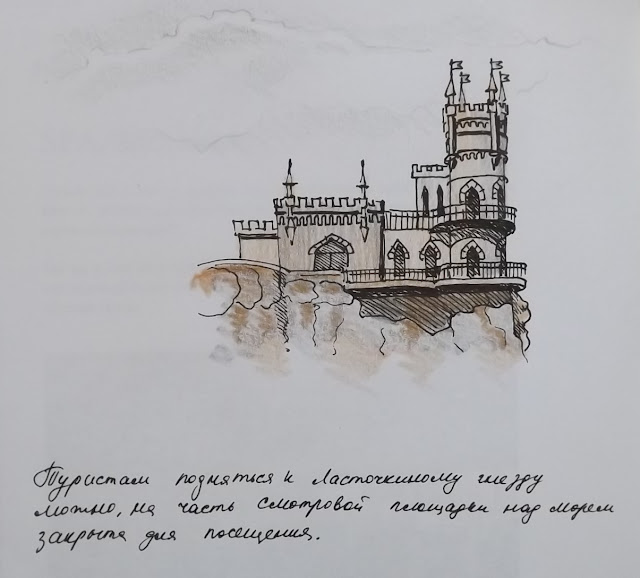 Туристам подняться к Ласточкиному гнезду
можно, но часть смотровой площадки над морем
закрыта для посещения.